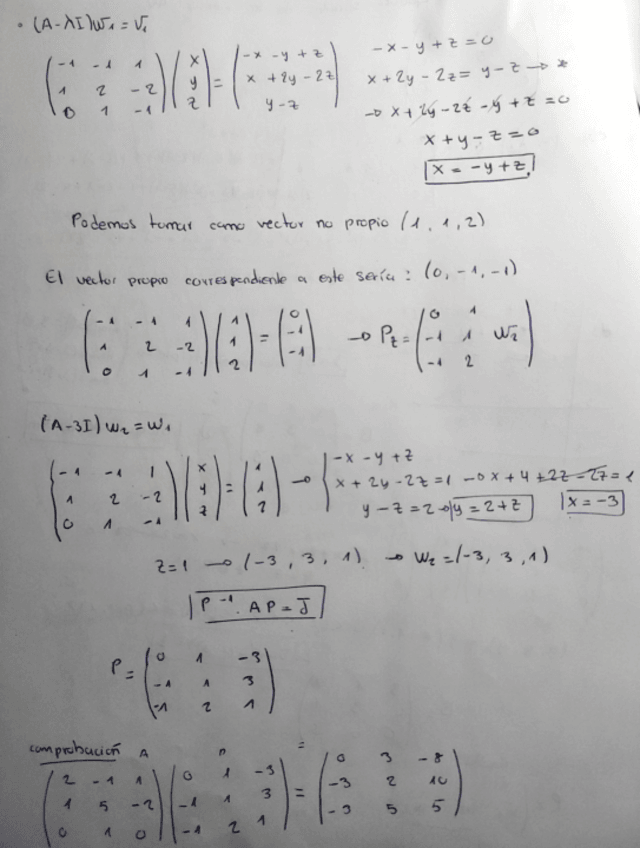 • (A-λI)w₁ = v₁
( -1 -1 1 ; 1 2 -2 ; 0 1 -1 ) ( x ; y ; z ) = ( -x -y +z ; x +2y -2z ; y-z )
-x - y + z = 0
x + 2y - 2z = y - z → *
→ x + 2y - 2z - y + z = 0
x + y - z = 0
x = -y + z
Podemos tomar como vector no propio (1, 1, 2)
El vector propio correspondiente a este sería: (0, -1, -1)
( -1 -1 1 ; 1 2 -2 ; 0 1 -1 ) ( 1 ; 1 ; 2 ) = ( 0 ; -1 ; -1 ) → P = ( 0 1 ; -1 1 w₂ ; -1 2 )
(A-3I) w₂ = w₁
( -1 -1 1 ; 1 2 -2 ; 0 1 -1 ) ( x ; y ; z ) = ( 1 ; 1 ; 2 ) →
-x - y + z
x + 2y - 2z = 1 → x + 4 + 2z - 2z = 1
y - z = 2 → y = 2+z
x = -3
z = 1 → (-3, 3, 1) → w₂ = (-3, 3, 1)
P⁻¹ · AP = J
P = ( 0 1 -3 ; -1 1 3 ; -1 2 1 )
comprobación A P =
( 2 -1 1 ; 1 5 -2 ; 0 1 0 ) ( 0 1 -3 ; -1 1 3 ; -1 2 1 ) = ( 0 3 -8 ; -3 2 10 ; -3 5 5 )